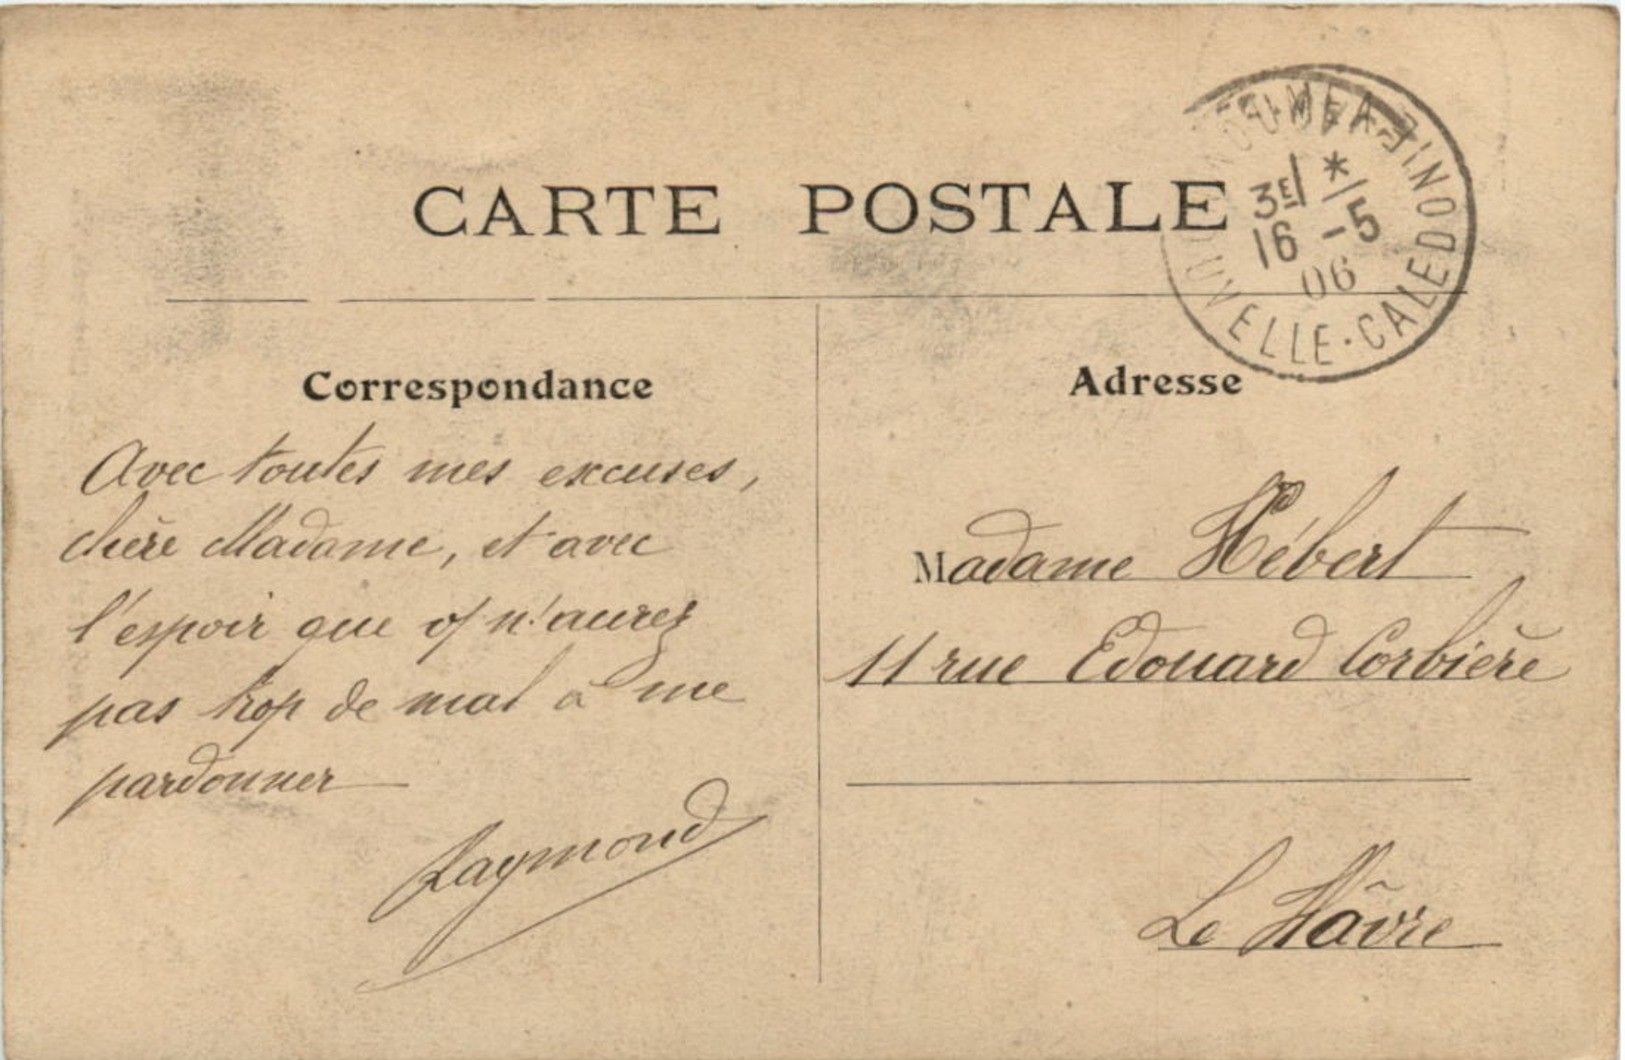 CARTE POSTALE
NOUMEA
3E *
16 -5
06
NOUVELLE-CALEDONIE
Correspondance
Avec toutes mes excuses,
chère Madame, et avec
l'espoir que n'aurez
pas trop de mal à me
pardonner
Raymond
Adresse
Madame Hébert
11 rue Edouard Corbière
Le Hâvre